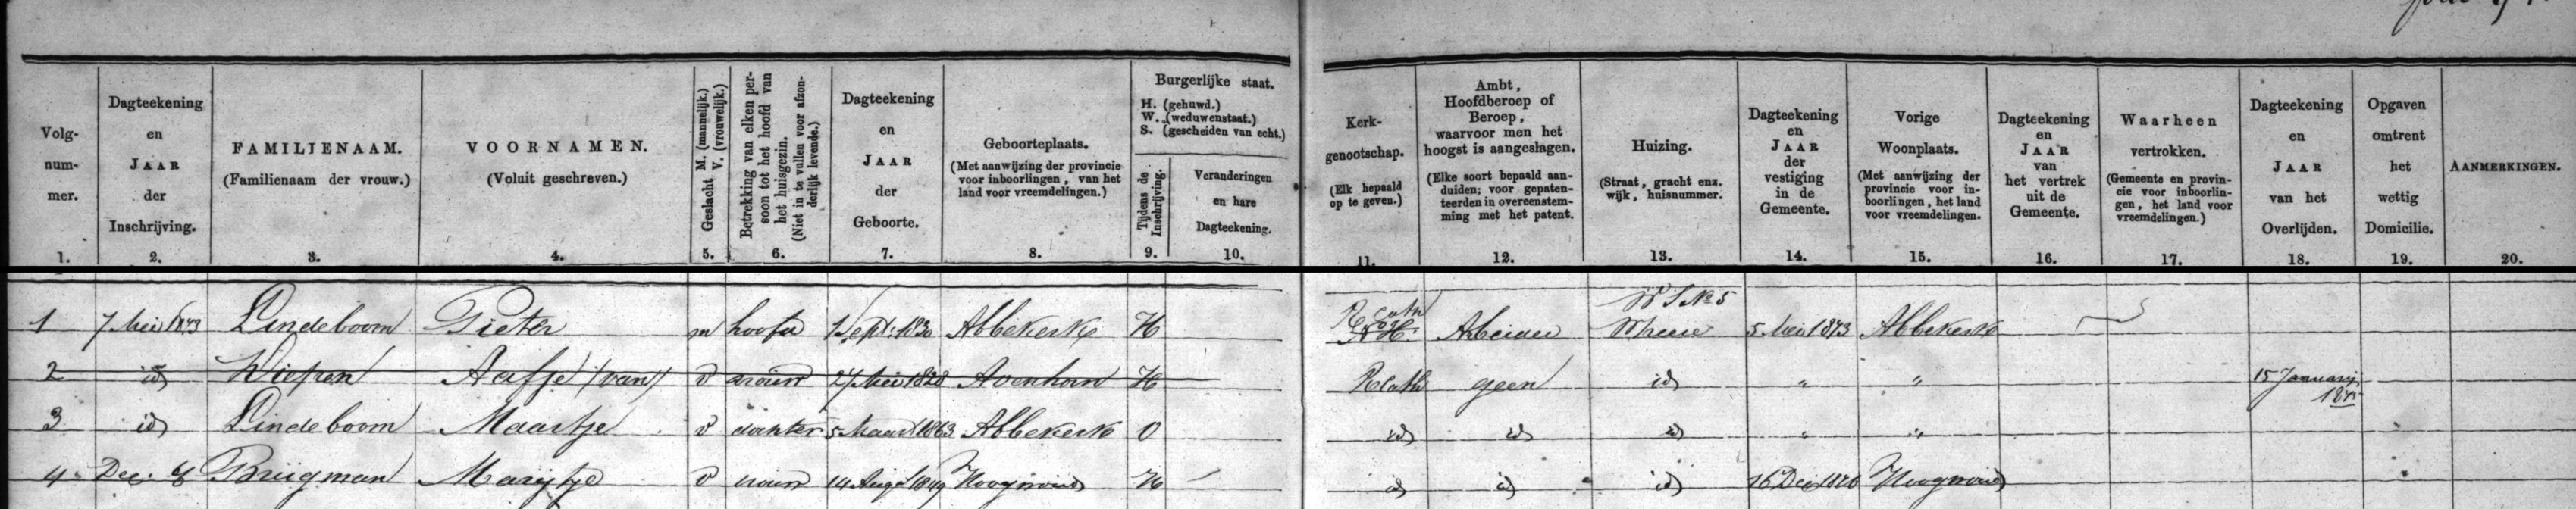 Volg-
num-
mer.
1.
Dagteekening
en
JAAR
der
Inschrijving.
2.
FAMILIENAAM.
(Familienaam der vrouw.)
3.
VOORNAMEN.
(Voluit geschreven.)
4.
Geslacht M. (mannelijk.)
V. (vrouwelijk.)
5.
Betrekking van elken per-
soon tot het hoofd van
het huisgezin.
(Niet in te vullen voor afzon-
derlijk levende.)
6.
Dagteekening
en
JAAR
der
Geboorte.
7.
Geboorteplaats.
(Met aanwijzing der provincie
voor inboorlingen, van het
land voor vreemdelingen.)
8.
Burgerlijke staat.
H. (gehuwd.)
W. (weduwenstaat.)
S. (gescheiden van echt.)
Tijdens de
Inschrijving.
9.
Veranderingen
en hare
Dagteekening.
10.
Kerk-
genootschap.
(Elk bepaald
op te geven.)
11.
Ambt,
Hoofdberoep of
Beroep,
waarvoor men het
hoogst is aangeslagen.
(Elke soort bepaald aan-
duiden; voor gepaten-
teerden in overeenstem-
ming met het patent.
12.
Huizing.
(Straat, gracht enz.
wijk, huisnummer.
13.
Dagteekening
en
JAAR
der
vestiging
in de
Gemeente.
14.
Vorige
Woonplaats.
(Met aanwijzing der
provincie voor in-
boorlingen, het land
voor vreemdelingen.
15.
Dagteekening
en
JAAR
van
het vertrek
uit de
Gemeente.
16.
Waarheen
vertrokken.
(Gemeente en provin-
cie voor inboorlin-
gen, het land voor
vreemdelingen.)
17.
Dagteekening
en
JAAR
van het
Overlijden.
18.
Opgaven
omtrent
het
wettig
Domicilie.
19.
AANMERKINGEN.
20.
1 7 Mei 1873 Lindeboom Pieter m hoofd 1 Sept. 1830 Abbekerk H R Cath N H. Arbeider W S No 5 5 Mei 1873 Abbekerk
2 id Diepen Aafje (van) v vrouw 27 Mei 1828 Avenhorn H R Cath geen id " " 15 Januarij
3 id Lindeboom Maartje v dochter 5 Maart 1863 Abbekerk O id id id " "
4 Dec. Brugman Marijtje v vrouw 14 Aug 1849 Hoogwoud H id id id 16 Dec 1876 Hoogwoud